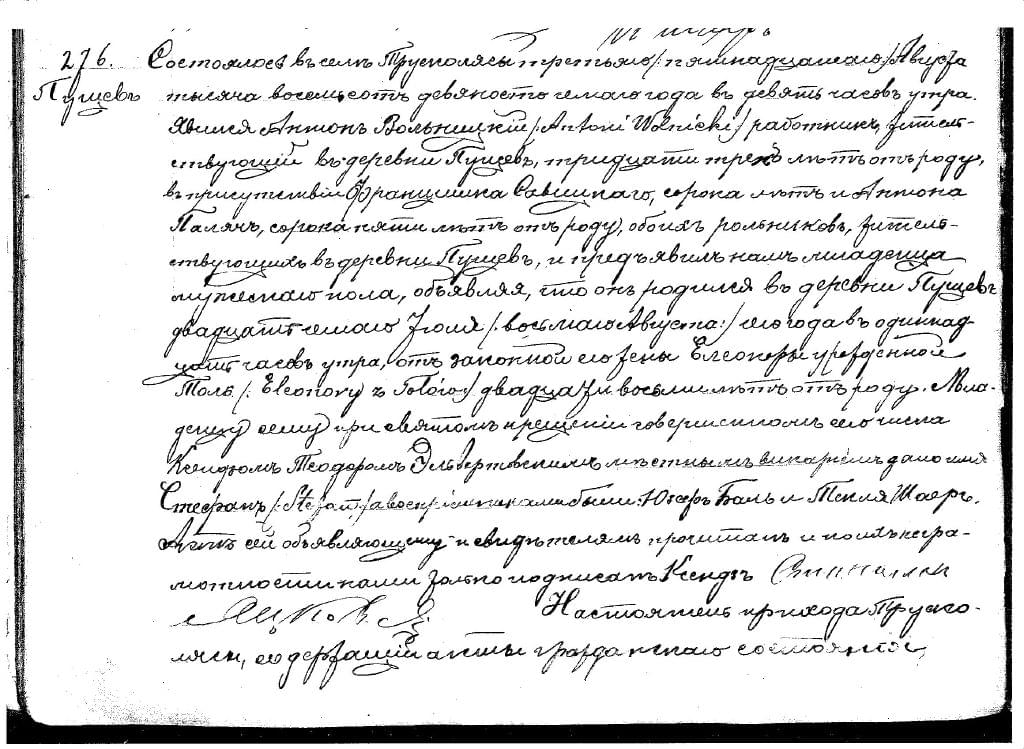 276. Состоялось въ семъ Трусколясы третьяго /:пятнадцатаго:/ Августа
Пущевъ тысяча восемьсотъ девяносто седьмаго года въ девять часовъ утра.
Явился Антонъ Вольницкій /:Antoni Wolnicki:/ работникъ, житель-
ствующій въ деревни Пущевъ, тридцати трехъ лѣтъ отъ роду,
въ присутствіи Францишка Савицкаго, сорока лѣтъ и Антона
Палячъ, сорока пяти лѣтъ отъ роду, обоихъ рольниковъ, житель-
ствующихъ въ деревни Пущевъ, и предъявилъ намъ младенца
мужескаго пола, объявляя, что онъ родился въ деревни Пущевъ
двадцать седьмаго Іюля /:восьмаго Августа:/ сего года въ одиннад-
цать часовъ утра, отъ законной его жены Елеоноры урожденной
Толь /:Eleonory z Tolów:/ двадцати восьми лѣтъ отъ роду. Мла-
денцу сему при святомъ крещеніи совершенномъ сего числа
Ксендзомъ Теодоромъ мѣстнымъ викаріемъ дано имя
Стефанъ /:Stefan:/ а воспріемниками были: Юзефъ Баль и Текля
Актъ сей объявляющему и свидѣтелямъ прочитанъ и по ихъ негра-
мотности нами только подписанъ Ксендзъ
Настоятель прихода Труско-
лясы, содержащій акты гражданскаго состоянія,